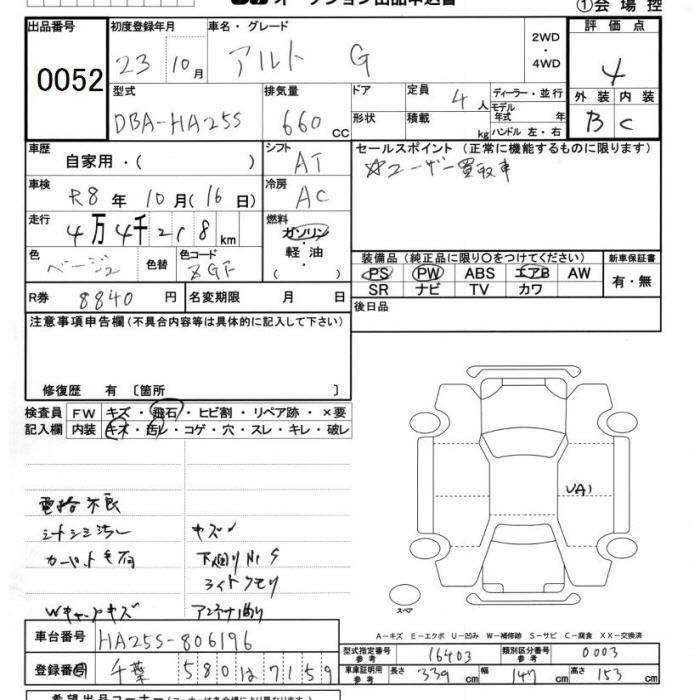 ①会場控
出品番号
0052
初度登録年月
23 10月
車名・グレード
アルト G
2WD
・
4WD
評価点
4
型式
DBA-HA25S
排気量
660 CC
ドア
形状
定員
4人
積載
kg
ディーラー・並行
モデル
年式 年
ハンドル 左・右
外装 内装
B C
車歴
自家用・( )
シフト
AT
セールスポイント (正常に機能するものに限ります)
☆ユーザー買取車
車検
R8年 10月(16日)
冷房
AC
走行
4万4千218km
燃料
ガソリン
・
軽油
・
( )
色
ベージュ
色替
色コード
ZGF
装備品 (純正品に限り〇をつけてください)
PS PW ABS エアB AW
SR ナビ TV カワ
新車保証書
有・無
R券
8840円
名変期限 月 日
後日品
注意事項申告欄(不具合内容等は具体的に記入して下さい)
修復歴 有 〔箇所 〕
検査員
記入欄
FW キズ・飛石・ヒビ割・リペア跡・×要
内装 キズ・汚レ・コゲ・穴・スレ・キレ・破レ
電格不良
シートシミ汚レ
キズ
カーペット毛有
下廻りサビ
ライトクモリ
Wキャップキズ
アンテナ曲り
UA1
スペア
A-キズ E-エクボ U-凹み W-補修跡 S-サビ C-腐食 XX-交換済
車台番号
HA25S-806196
登録番号
千葉 580 は 7159
型式指定番号
参考
16403
類別区分番号
参考
0003
車庫証明用
参考
長さ 339cm 幅 147cm 高さ 153cm